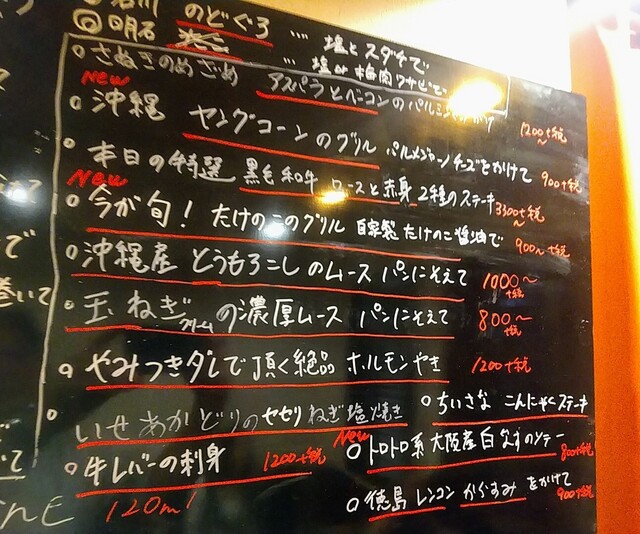 石川 のどぐろ … 塩とスダチで
◎ 明石 … 塩か梅肉ワサビで
さぬきのめざめ アスパラとベーコンのパルミジャーノ
New 沖縄 ヤングコーンのグリル パルメジャーノチーズをかけて 1200+税〜
本日の特選 黒毛和牛 ロースと赤身 2種のステーキ 900+税
New 今が旬! たけのこのグリル 自家製 たけのこ醤油で 3300+税〜
沖縄産 とうもろこしのムース パンにそえて 900〜+税
玉ねぎクリームの濃厚ムース パンにそえて 1000〜+税
800〜+税
やみつきダレで頂く絶品 ホルモンやき 1200+税
いせあかどりのセセリ ねぎ塩焼き
ちいさな こんにゃくステーキ
牛レバーの刺身 1200+税
New トロトロ系 大阪産 白なすのソテー 800+税
徳島 レンコン からすみをかけて 900+税
120ml